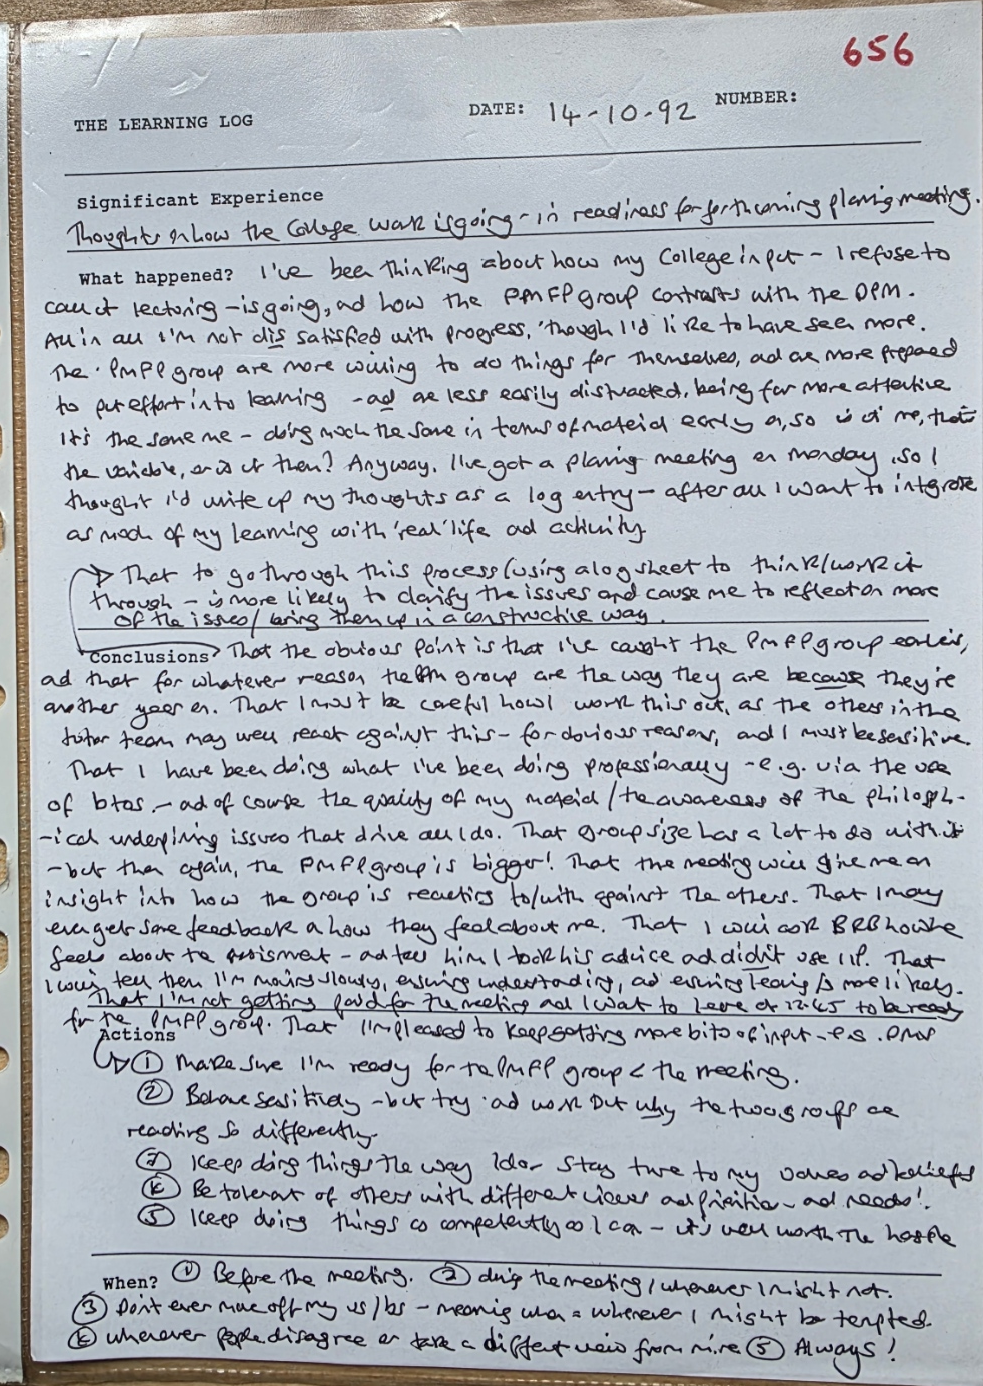 656
THE LEARNING LOG DATE: 14-10-92 NUMBER:
Significant Experience
Thoughts on how the College work is going - in readiness for forthcoming planing meeting.
What happened? I've been thinking about how my College input - I refuse to
call it lectoring - is going, ad how the PMFP group contrasts with the DPM.
All in all I'm not dis satisfied with progress, 'though I'd like to have seen more.
The PMFP group are more willing to do things for themselves, ad are more prepared
to put effort into learning - ad are less easily distracted, being far more attentive
It's the same me - doing much the same in terms of material early on, so is it me, that's
the variable, or is it them? Anyway, I've got a planing meeting on monday, so I
thought I'd write up my thoughts as a log entry - after all I want to integrate
as much of my learning with 'real' life ad activity.
That to go through this process (using a log sheet to think/work it
through - is more likely to clarify the issues and cause me to reflect on more
of the issues/bring them up in a constructive way.
Conclusions That the obvious point is that I've caught the PMFP group earlier,
ad that for whatever reason the group are the way they are because they're
another year on. That I must be careful how I work this out, as the others in the
tutor team may well react against this - for obvious reasons, and I must be sensitive.
That I have been doing what I've been doing professionally - e.g. via the use
of btas - ad of course the quality of my material / the awareness of the philosoph-
-ical underpining issues that drive all I do. That group size has a lot to do with it
- but then again, the PMFP group is bigger! That the meeting will give me an
insight into how the group is reacting to/with against the others. That I may
even get some feedback on how they feel about me. That I will ask BRB how he
feels about the - ad tell him I took his advice ad didn't use it. That
I will tell them I'm moving slowly, ensuring understanding, ad ensuring learning is more likely.
That I'm not getting paid for the meeting and I want to leave at 12.45 to be ready
for the PMFP group. That I'm pleased to keep getting more bits of input - e.g.
Actions
① Make sure I'm ready for the PMFP group < the meeting.
② Behave sensitively - but try ad work out why the two groups are
reacting so differently.
③ Keep doing things the way I do - stay true to my values ad beliefs
④ Be tolerant of others with different views ad priorities - ad needs!
⑤ Keep doing things as competently as I can - it's well worth the hassle
When? ① Before the meeting. ② during the meeting / whenever I might not.
③ Don't ever move off my vs/bs - meaning when = whenever I might be tempted.
④ whenever people disagree or take a different view from mine ⑤ Always!